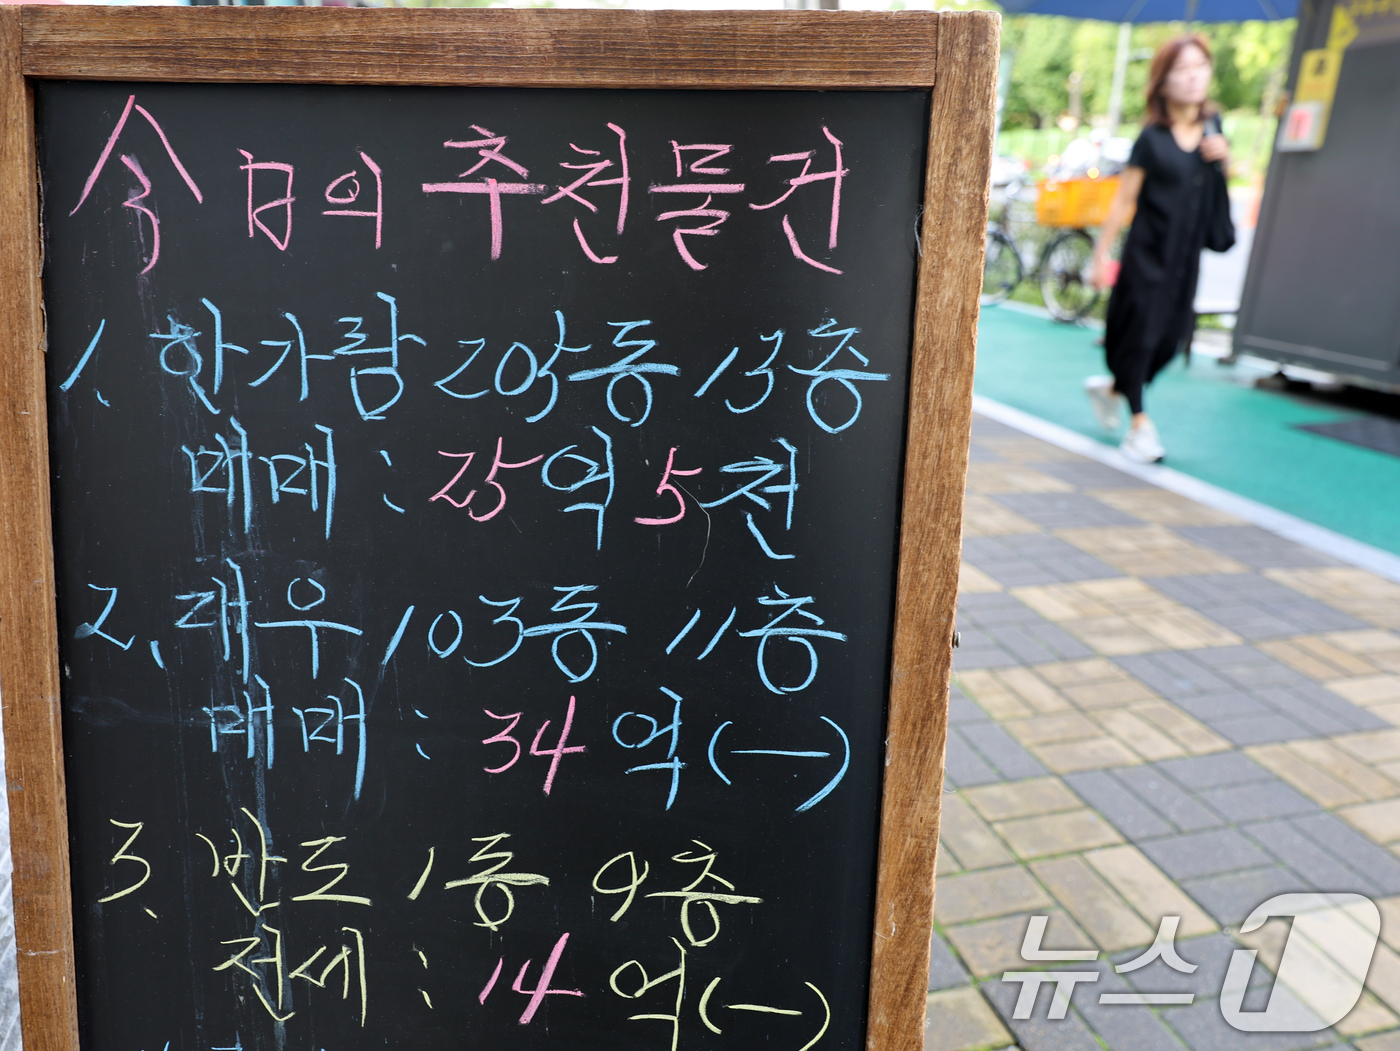 今日의 추천물건
1. 한가람 205동 13층
매매 : 25억 5천
2. 대우 103동 11층
매매 : 34억 (一)
3. 반도 1동 9층
전세 : 14억 (一)
뉴스1